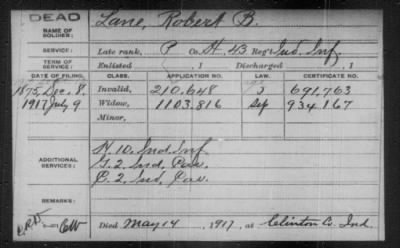 DEAD
NAME OF SOLDIER:
Lane, Robert B.
SERVICE:
Late rank, P Co. H, 43 Reg't Ind. Inf.
TERM OF SERVICE:
Enlisted , 1 Discharged , 1
DATE OF FILING. CLASS. APPLICATION NO. LAW. CERTIFICATE NO.
1875, Dec. 8. Invalid, 210,648 691,763
1917 July 9 Widow, 1103,816 Sep 934,167
Minor,
ADDITIONAL SERVICES:
H. 10. Ind. Inf
G. 2 Ind. Cav.
C. 2 Ind. Cav.
REMARKS:
Died May 14, 1917, at Clinton Co. Ind.